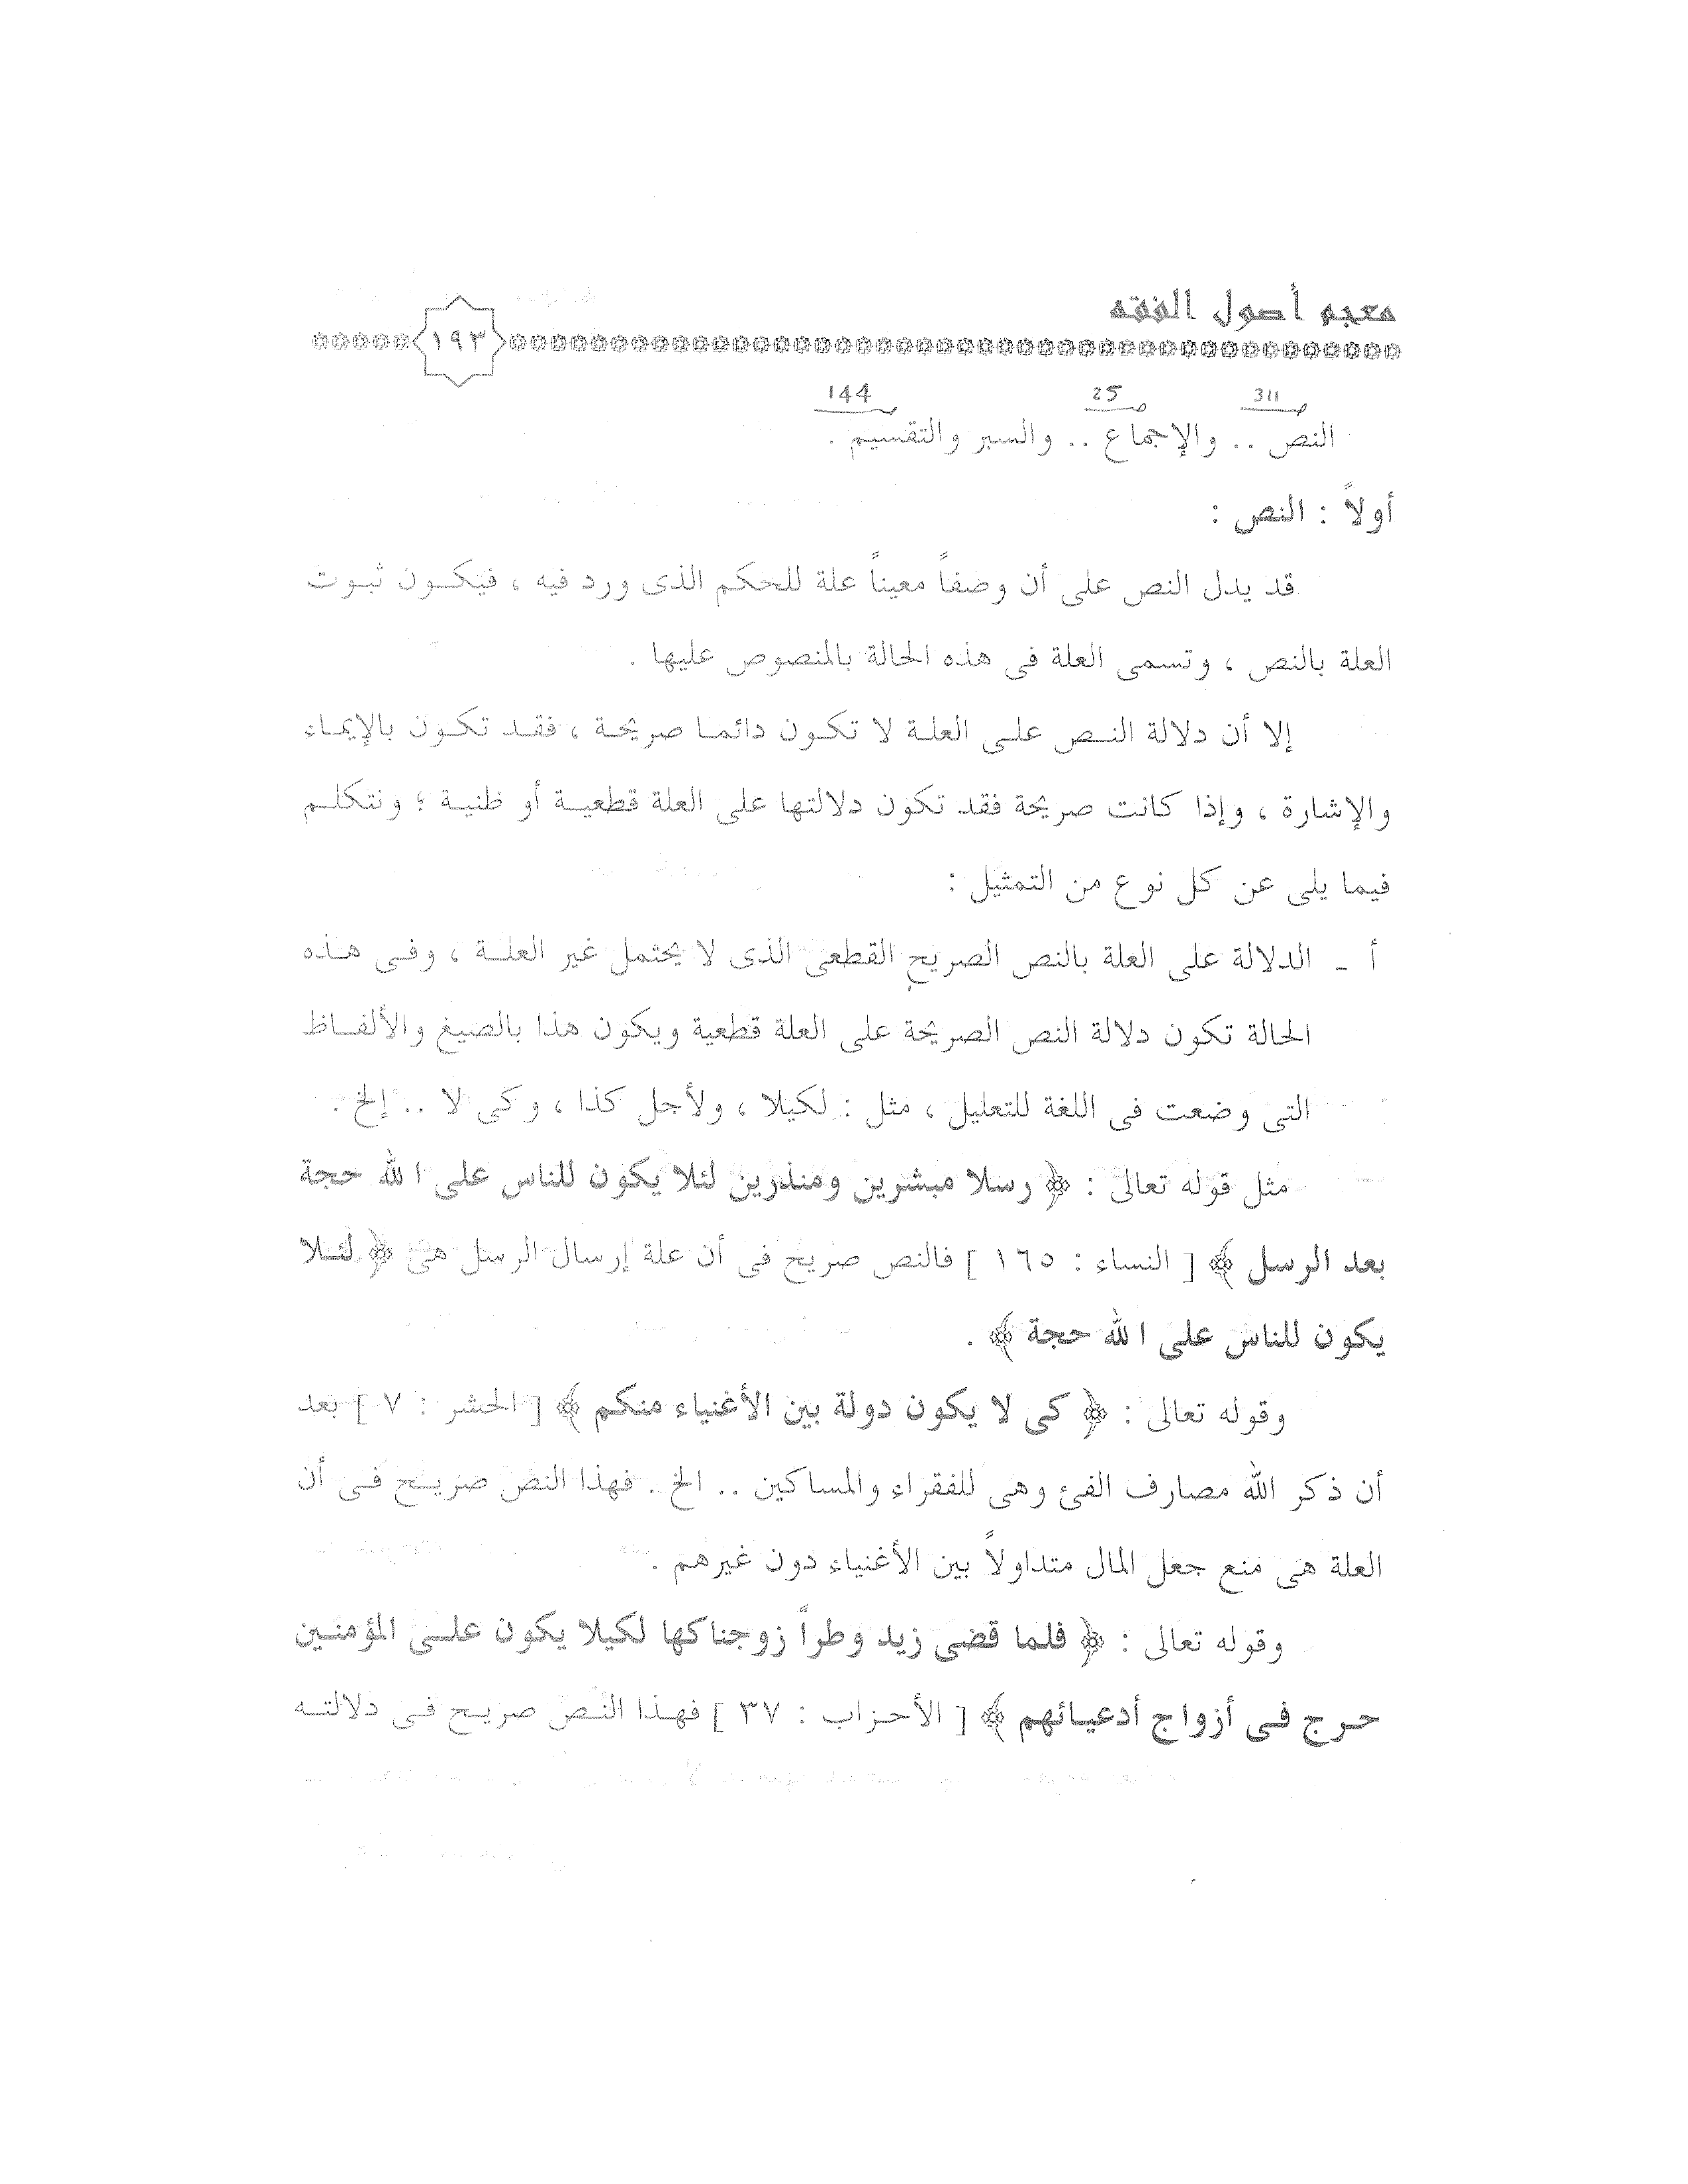 معجم أصول الفقه
١٩٣
ص 311 ص 25 ص 144
النص .. والإجماع .. والسبر والتقسيم .
أولاً : النص :
قد يدل النص على أن وصفاً معيناً علة للحكم الذى ورد فيه ، فيكون ثبوت
العلة بالنص ، وتسمى العلة فى هذه الحالة بالمنصوص عليها .
إلا أن دلالة النص على العلة لا تكون دائما صريحة ، فقد تكون بالإيماء
والإشارة ، وإذا كانت صريحة فقد تكون دلالتها على العلة قطعية أو ظنية ؛ ونتكلم
فيما يلى عن كل نوع من التمثيل :
أ ـ الدلالة على العلة بالنص الصريح القطعى الذى لا يحتمل غير العلة ، وفى هذه
الحالة تكون دلالة النص الصريحة على العلة قطعية ويكون هذا بالصيغ والألفاظ
التى وضعت فى اللغة للتعليل ، مثل : لكيلا ، ولأجل كذا ، وكى لا .. إلخ .
مثل قوله تعالى : ﴿ رسلا مبشرين ومنذرين لئلا يكون للناس على الله حجة
بعد الرسل ﴾ [ النساء : ١٦٥ ] فالنص صريح فى أن علة إرسال الرسل هى ﴿ لئلا
يكون للناس على الله حجة ﴾ .
وقوله تعالى : ﴿ كى لا يكون دولة بين الأغنياء منكم ﴾ [ الحشر : ٧ ] بعد
أن ذكر الله مصارف الفئ وهى للفقراء والمساكين .. الخ . فهذا النص صريح فى أن
العلة هى منع جعل المال متداولاً بين الأغنياء دون غيرهم .
وقوله تعالى : ﴿ فلما قضى زيد وطراً زوجناكها لكيلا يكون على المؤمنين
حرج فى أزواج أدعيائهم ﴾ [ الأحزاب : ٣٧ ] فهذا النص صريح فى دلالته